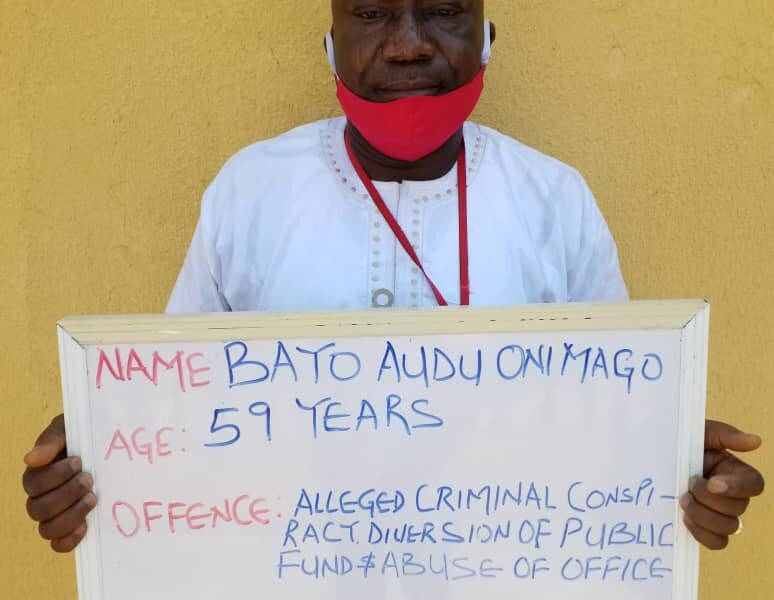 NAME BAYO AUDU ONIMAGO
AGE: 59 YEARS
OFFENCE: ALLEGED CRIMINAL CONSPI-
RACT. DIVERSION OF PUBLIC
FUND & ABUSE OF OFFICE